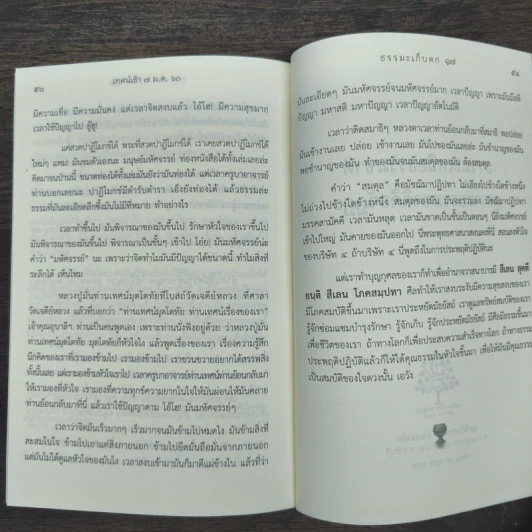 ๕๐ เทศน์เช้า ๗ ม.ค. ๖๐
มีความเชื่อ มีความมั่นคง แต่เวลาจิตสงบแล้ว โอ้โฮ! มีความสุขมากๆ
เวลาใช้ปัญญาไป อู้ฮู!
แค่สวดปาฏิโมกข์ได้ พระที่สวดปาฏิโมกข์ได้ เราเคยสวดปาฏิโมกข์ได้
ใหม่ๆ แหม! มันชมตัวเองนะ มนุษย์มหัศจรรย์ ท่องหนังสือได้ทั้งเล่มเลยล่ะ
คิดมาจนป่านนี้ ขนาดท่องได้ทั้งเล่มมันยังว่ามันท่องได้ แต่เวลาครูบาอาจารย์
ท่านบอกเลยนะ ปาฏิโมกข์มีตำรับตำรา เอ็งยังท่องได้ แล้วธรรมล่ะ
ธรรมที่มันละเอียดลึกซึ้งมันไม่มีที่หมาย ทำอย่างไร
เวลาทำขึ้นไป มันพิจารณาของมันขึ้นไป รักษาหัวใจของเราขึ้นไป
มันพิจารณาของมันขึ้นไป พิจารณาเป็นชั้นๆ เข้าไป โอ้ย! มันมหัศจรรย์นะ
คำว่า "มหัศจรรย์" นะ เพราะว่าจิตทำไมมันมีปัญญาได้ขนาดนี้ ทำไมสิ่งที่
ระลึกได้ เห็นไหม
หลวงปู่มั่นท่านเทศน์มุตโตทัยที่โบสถ์วัดเจดีย์หลวง ที่ศาลา
วัดเจดีย์หลวง แล้วที่บอกว่า "ท่านเทศน์มุตโตทัย ท่านเทศน์เรื่องของเรา"
เจ้าคุณอุบาลีฯ ท่านเป็นคนพูดเอง เพราะท่านนั่งฟังอยู่ด้วย ว่าหลวงปู่มั่น
ท่านเทศน์มุตโตทัย มุตโตทัยก็หัวใจไง แล้วพูดเรื่องของเรา เรื่องความรู้สึก
นึกคิดของเราที่เรามองข้ามไป เรามองข้ามไป เราขวนขวายอยากได้สรรพสิ่ง
ทั้งนั้นเลย แต่เรามองข้ามหัวใจเราไป เวลาครูบาอาจารย์ท่านเทศน์ท่านย้อนกลับมา
ให้เรามองที่หัวใจ เรามองที่ความทุกข์ความยากในใจให้มันผ่อนให้มันคลาย
ท่านย้อนกลับมาที่นี่ แล้วเราใช้ปัญญาตาม โอ้โฮ! มันมหัศจรรย์ๆ
เวลาว่าจิตมันเร็วมากๆ เร็วมากจนมันข้ามไปหมดไง มันข้ามสิ่งที่
สะสมในใจ ข้ามไปเอาแต่สิ่งภายนอก ข้ามไปยึดมั่นถือมั่นจากภายนอก
แต่มันไม่ได้ดูแลหัวใจของมันไง เวลาสงบเข้ามามันก็มาตีแผ่ข้างใน แล้วที่ว่า
ธรรมะเก็บตก ๑๗ ๕๑
มันละเอียดๆ มันมหัศจรรย์จนมหัศจรรย์มาก เวลาปัญญา เพราะมันมีสติ
ปัญญา มหาสติ มหาปัญญา เวลาปัญญาอัตโนมัติ
เวลาว่าติดสมาธิๆ หลวงตาเวลาท่านย้อนกลับมาที่สมาธิ พอปล่อย
มันเข้างานเลย ปล่อย เข้างานเลย มันไปของมันเลยล่ะ มันชำนาญของมัน
พอชำนาญของมัน ทำของมันจนมันสมดุลของมัน ต้องสมดุล
คำว่า "สมดุล" คือมัชฌิมาปฏิปทา ไม่เอียงไปข้างใดข้างหนึ่ง
ไม่ถ่วงไปข้างใดข้างหนึ่ง สมดุลของมัน มันจะรวมลง มัชฌิมาปฏิปทา
มรรคสามัคคี เวลามันหลุด เวลามันขาดเป็นชั้นเป็นตอนๆ นี่ยิ่งมหัศจรรย์
เข้าไปใหญ่ มันคายของมันออกไป นี่พระพุทธศาสนาสอนลงที่นี่ สอนลงหัวใจ
ของบริษัท ๔ ถ้าบริษัท ๔ นี่พูดถึงในการประพฤติปฏิบัตินะ
แต่เราทำบุญกุศลของเราก็ทำเพื่ออำนาจวาสนาบารมี สีเลน สุคตึ
ยนฺติ สีเลน โภคสมฺปทา ศีลทำให้เราสงบระงับมีความสุขของเรา
มีโภคสมบัติขึ้นมาเพราะเราประหยัดมัธยัสถ์ เราดูแลทรัพย์สมบัติของเรา
รู้จักซ่อมแซมบำรุงรักษา รู้จักเก็บ รู้จักประหยัดมัธยัสถ์ นี่ศีลมีธรรมขึ้นมา
เพื่อชีวิตของเรา ถ้าทางโลกก็เพื่อประสบความสำเร็จทางโลก ถ้าทางธรรม
ประพฤติปฏิบัติแล้วก็ให้ได้คุณธรรมในหัวใจขึ้นมา เพื่อให้มันมีคุณธรรม
เป็นสมบัติของใจดวงนั้น เอวัง